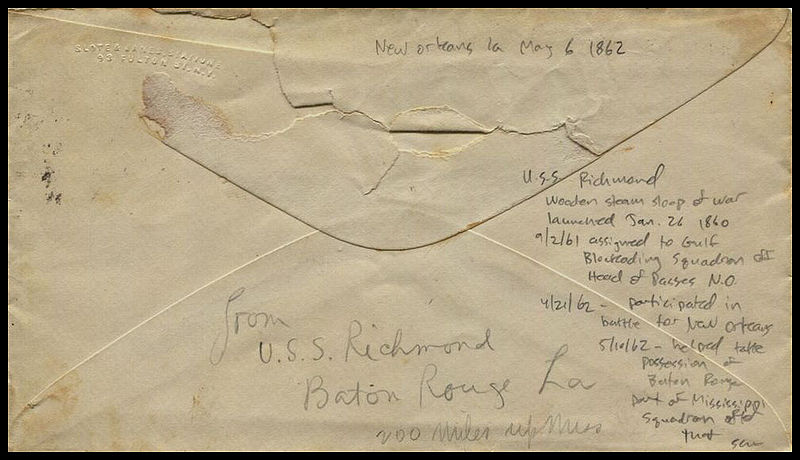 93 FULTON ST. N.Y.
New orleans la May 6 1862
U.S.S. Richmond
Wooden steam sloop of war
launched Jan. 26 1860
9/2/61 assigned to Gulf
Blockading Squadron off
Head of Passes N.O.
4/21/62 - participated in
battle for New Orleans
5/10/62 - helped take
possession of
Baton Rouge
part of Mississippi
Squadron
that
from
U.S.S. Richmond
Baton Rouge La
200 miles up Miss